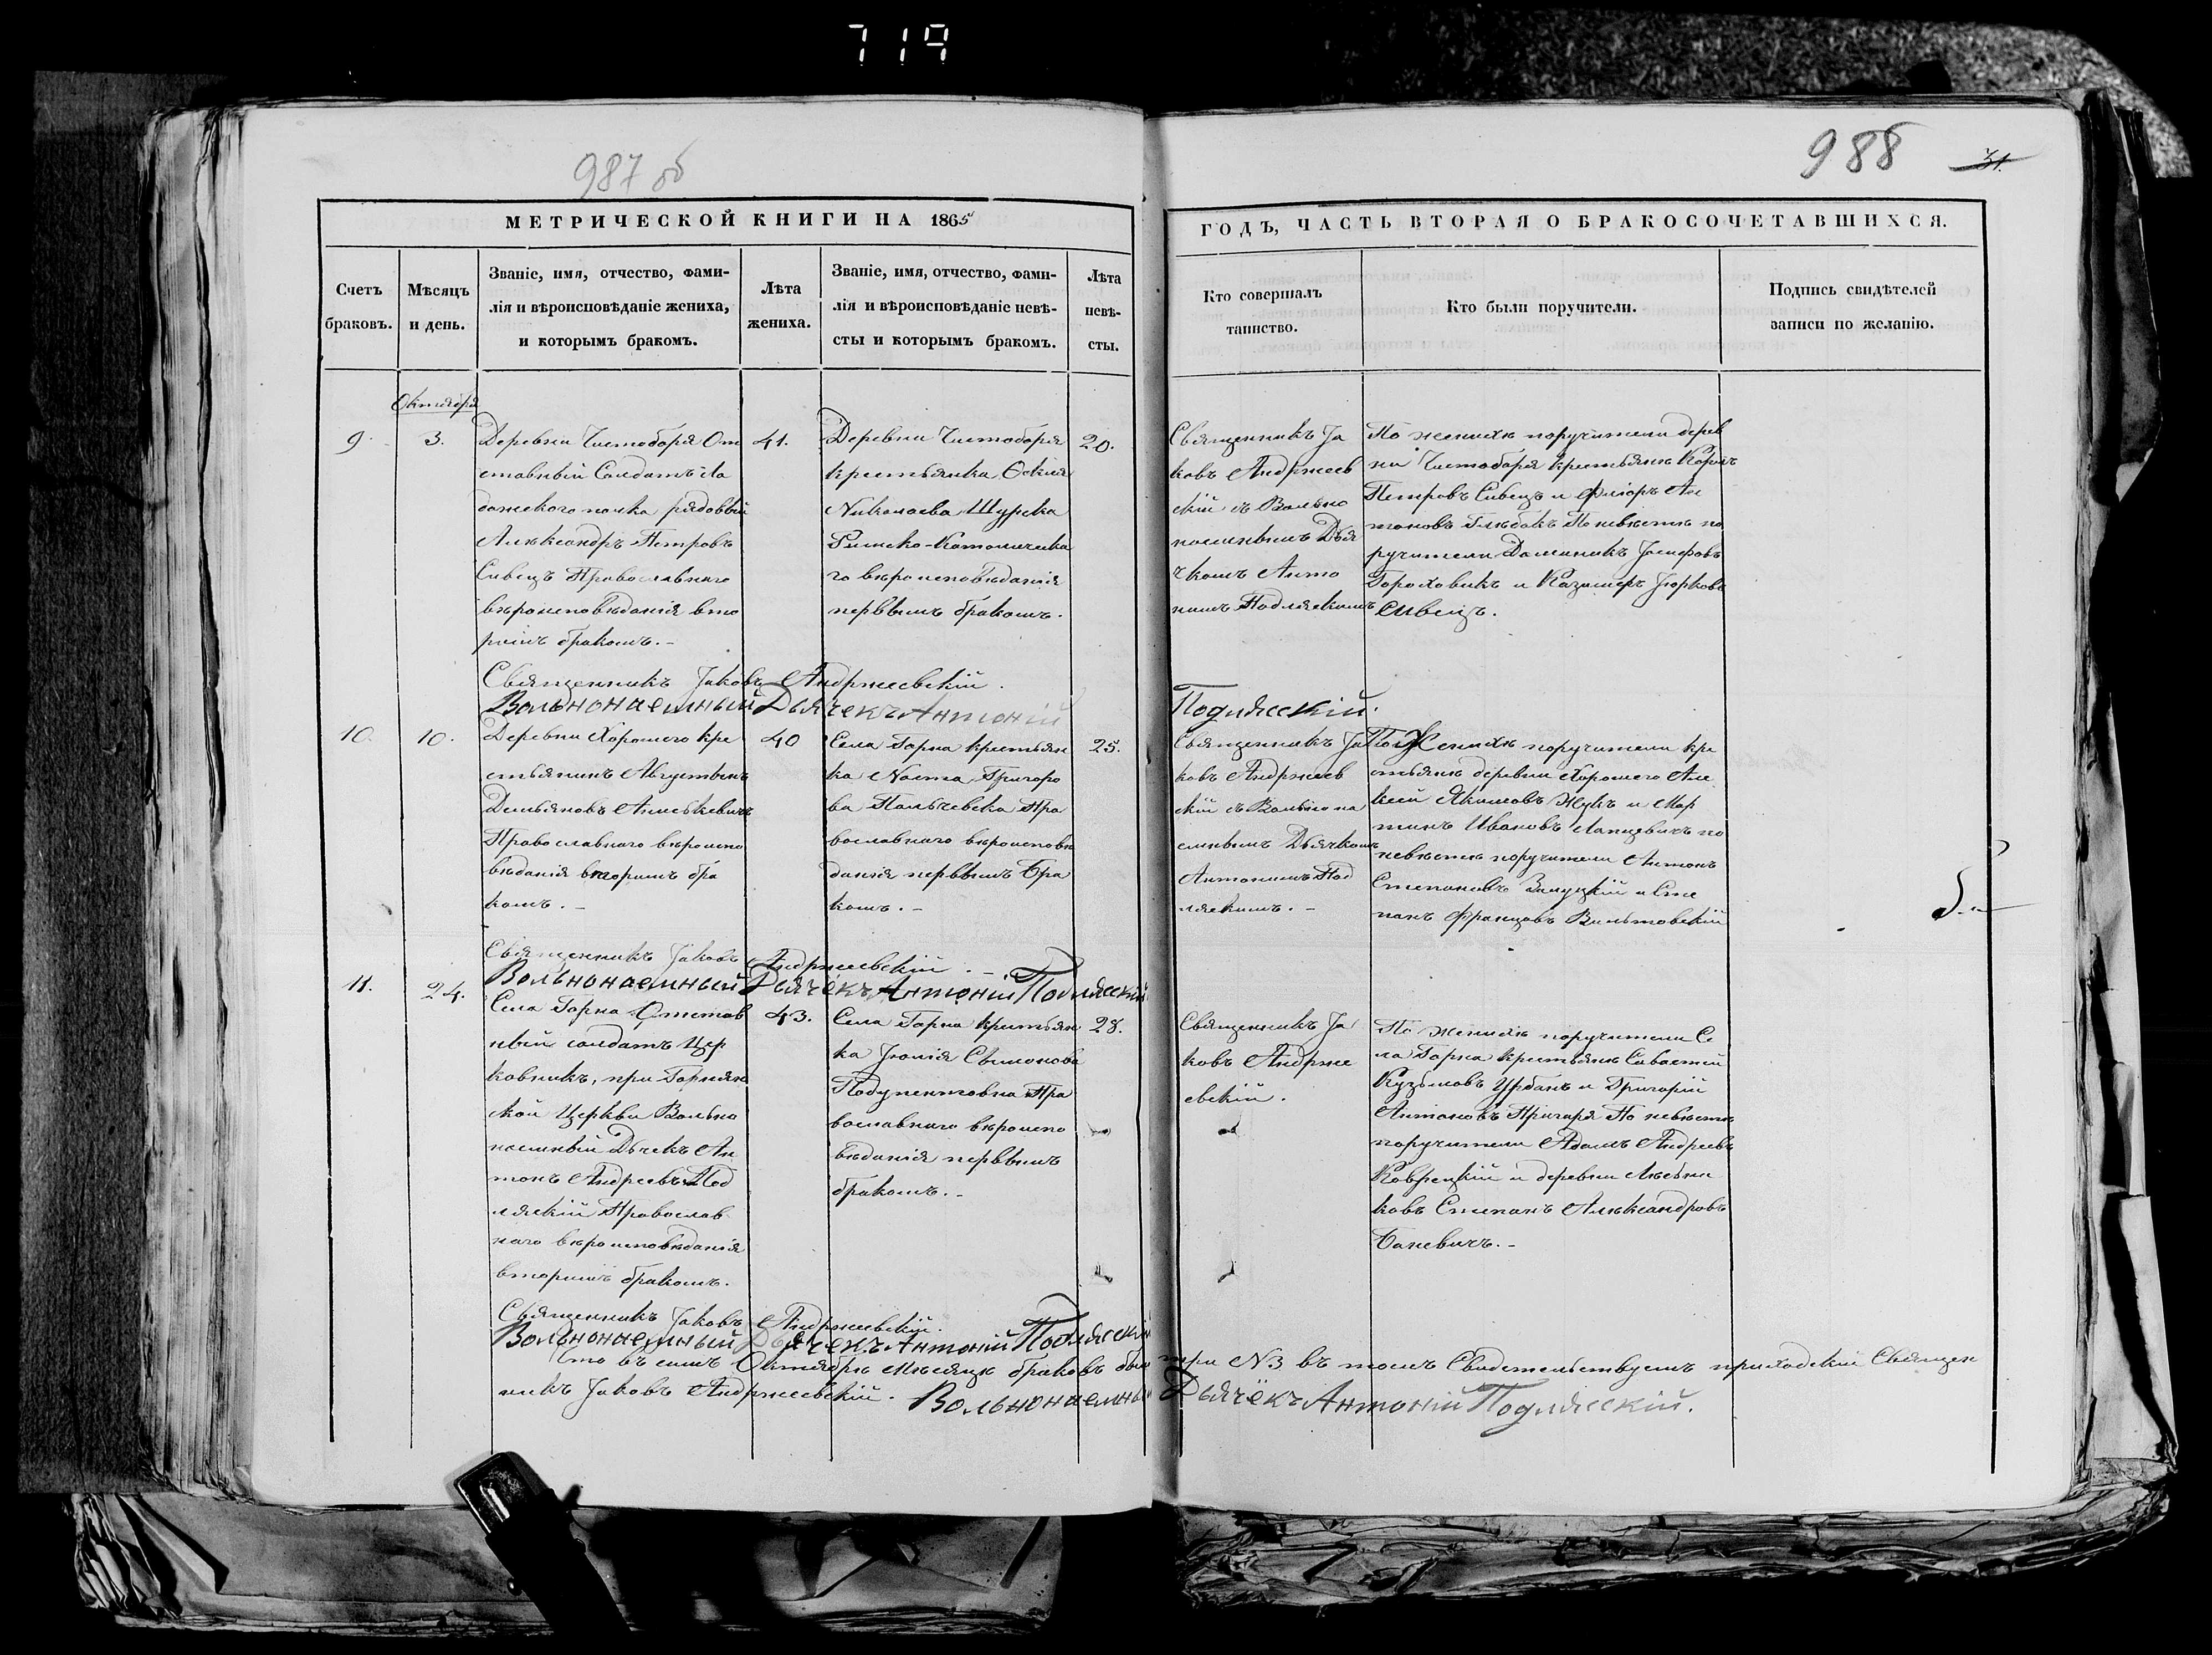 719
987 об
988
31.
МЕТРИЧЕСКОЙ КНИГИ НА 1865
ГОДЪ, ЧАСТЬ ВТОРАЯ О БРАКОСОЧЕТАВШИХСЯ.
Счетъ
браковъ.
Мѣсяцъ
и день.
Званіе, имя, отчество, фами-
лія и вѣроисповѣданіе жениха,
и которымъ бракомъ.
Лѣта
жениха.
Званіе, имя, отчество, фами-
лія и вѣроисповѣданіе невѣ-
сты и которымъ бракомъ.
Лѣта
невѣ-
сты.
Кто совершалъ
таинство.
Кто были поручители.
Подпись свидѣтелей
записи по желанію.
Октября
9.
3.
Деревни Чистоборя От
ставный Солдатъ Ла
дожскаго полка рядовый
Александръ Петровъ
Сивецъ Православнаго
вѣроисповѣданія вто
рымъ бракомъ.-
41.
Деревни Чистоборя
крестьянка
Николаева Щурска
Римско-Католическа
го вѣроисповѣданія
первымъ бракомъ.
20.
Священникъ Іа
ковъ Андржеев
скій съ Вольно
наемнымъ Дья
чкомъ Анто
ніемъ Подляскимъ
По женихѣ поручители дерев
ни Чистоборя крестьяне
Петровъ Сивецъ и Ан
тоновъ По невѣстѣ по
ручители Доминикъ Іосифовъ
Гороховикъ и Казимеръ Юрковъ
Сивецъ.
Священникъ Іаковъ Андржеевскій.
Вольнонаемный Дьячекъ Антоній
Подляскій.
10.
10.
Деревни Хорошего кре
стьянинъ Августынъ
Демьяновъ
Православнаго вѣроиспо
вѣданія вторымъ бра
комъ.-
40
Села Горна крестьян
ка Наста Григоро
ва Пальчевска Пра
вославнаго вѣроисповѣ
данія первымъ бра
комъ.-
25.
Священникъ Іа
ковъ Андржеев
скій съ Вольнона
емнымъ Дьячкомъ
Антоніемъ Под
ляскимъ.-
По Женихѣ поручители кре
стьяне деревни Хорошего Але
ксей Якимовъ Жукъ и Мар
тинъ Ивановъ Лапцевичъ по
невѣстѣ поручители Антонъ
Степановъ и Сте
панъ Францовъ Вильтовскій
Священникъ Іаковъ Андржеевскій.-
Вольнонаемный Дьячёкъ Антоній Подляскій
11.
24.
Села Горна Отстав
ный солдатъ Цер
ковникъ, при Горнян
ской Церкви Вольно
наемный Дьчекъ Ан
тонъ Андреевъ Под
ляскій Православ
наго вѣроисповѣданія
вторымъ бракомъ.
43.
Села Горна крестьян
ка Юлія Симонова
Пра
вославнаго вѣроиспо
вѣданія первымъ
бракомъ.-
28.
Священникъ Іа
ковъ Андрже
евскій.
По женихѣ поручители Се
ла Горна крестьяне Савастей
Кузьмовъ Урбанъ и Григорій
Антоновъ По невѣстѣ
поручители Адамъ Андреевъ
и деревни
ковъ Степанъ Александровъ
Баневичъ.-
Священникъ Іаковъ Андржеевскій.
Вольнонаемный Дьячекъ Антоній Подляскій
Что въ семъ Октябрѣ мѣсяцѣ браковъ было три №3 въ томъ Свидетельствуемъ приходскій Священ
никъ Іаковъ Андржеевскій. Вольнонаемный Дьячёкъ Антоній Подляскій.